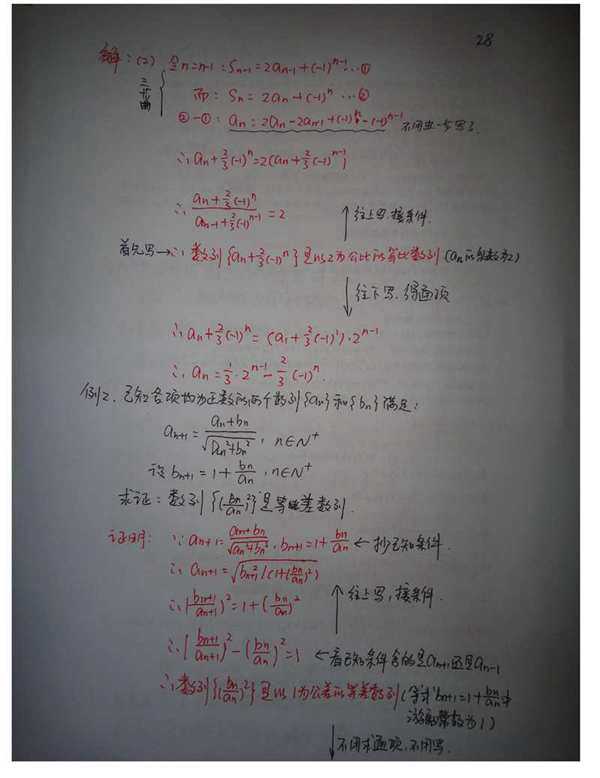 28
解：(2) 令n=n-1：Sn-1=2an-1+(-1)^{n-1} …①
而：Sn=2an+(-1)^n …②
②-①：an=2an-2an-1+(-1)^n-(-1)^{n-1} 不用
∴an+2/3(-1)^n=2(an+2/3(-1)^{n-1})
∴(an+2/3(-1)^n)/(an-1+2/3(-1)^{n-1})=2 ↑往上写，接条件.
首先写→∴数列{an+2/3(-1)^n}是以2为公比的等比数列(an的系数为2)
↓往下写，得通项
∴an+2/3(-1)^n=(a1+2/3(-1)^1)·2^{n-1}
∴an=1/3·2^{n-1}-2/3(-1)^n.
例2. 已知各项均为正数的两个数列{an}和{bn}满足：
an+1=(an+bn)/√(an²+bn²)，n∈N⁺
设bn+1=1+bn/an，n∈N⁺
求证：数列{(bn/an)²}是等差数列.
证明：∵an+1=(an+bn)/√(an²+bn²)，bn+1=1+bn/an ←抄已知条件.
∴an+1=√(bn+1²/(1+(bn/an)²))
∴(bn+1/an+1)²=1+(bn/an)² ↑往上写，接条件.
∴(bn+1/an+1)²-(bn/an)²=1 ←看已知条件含的是an+1还是an-1
∴数列{(bn/an)²}是以1为公差的等差数列(bn+1=1+bn/an中
常数为1)
↓不用求通项，不用写.